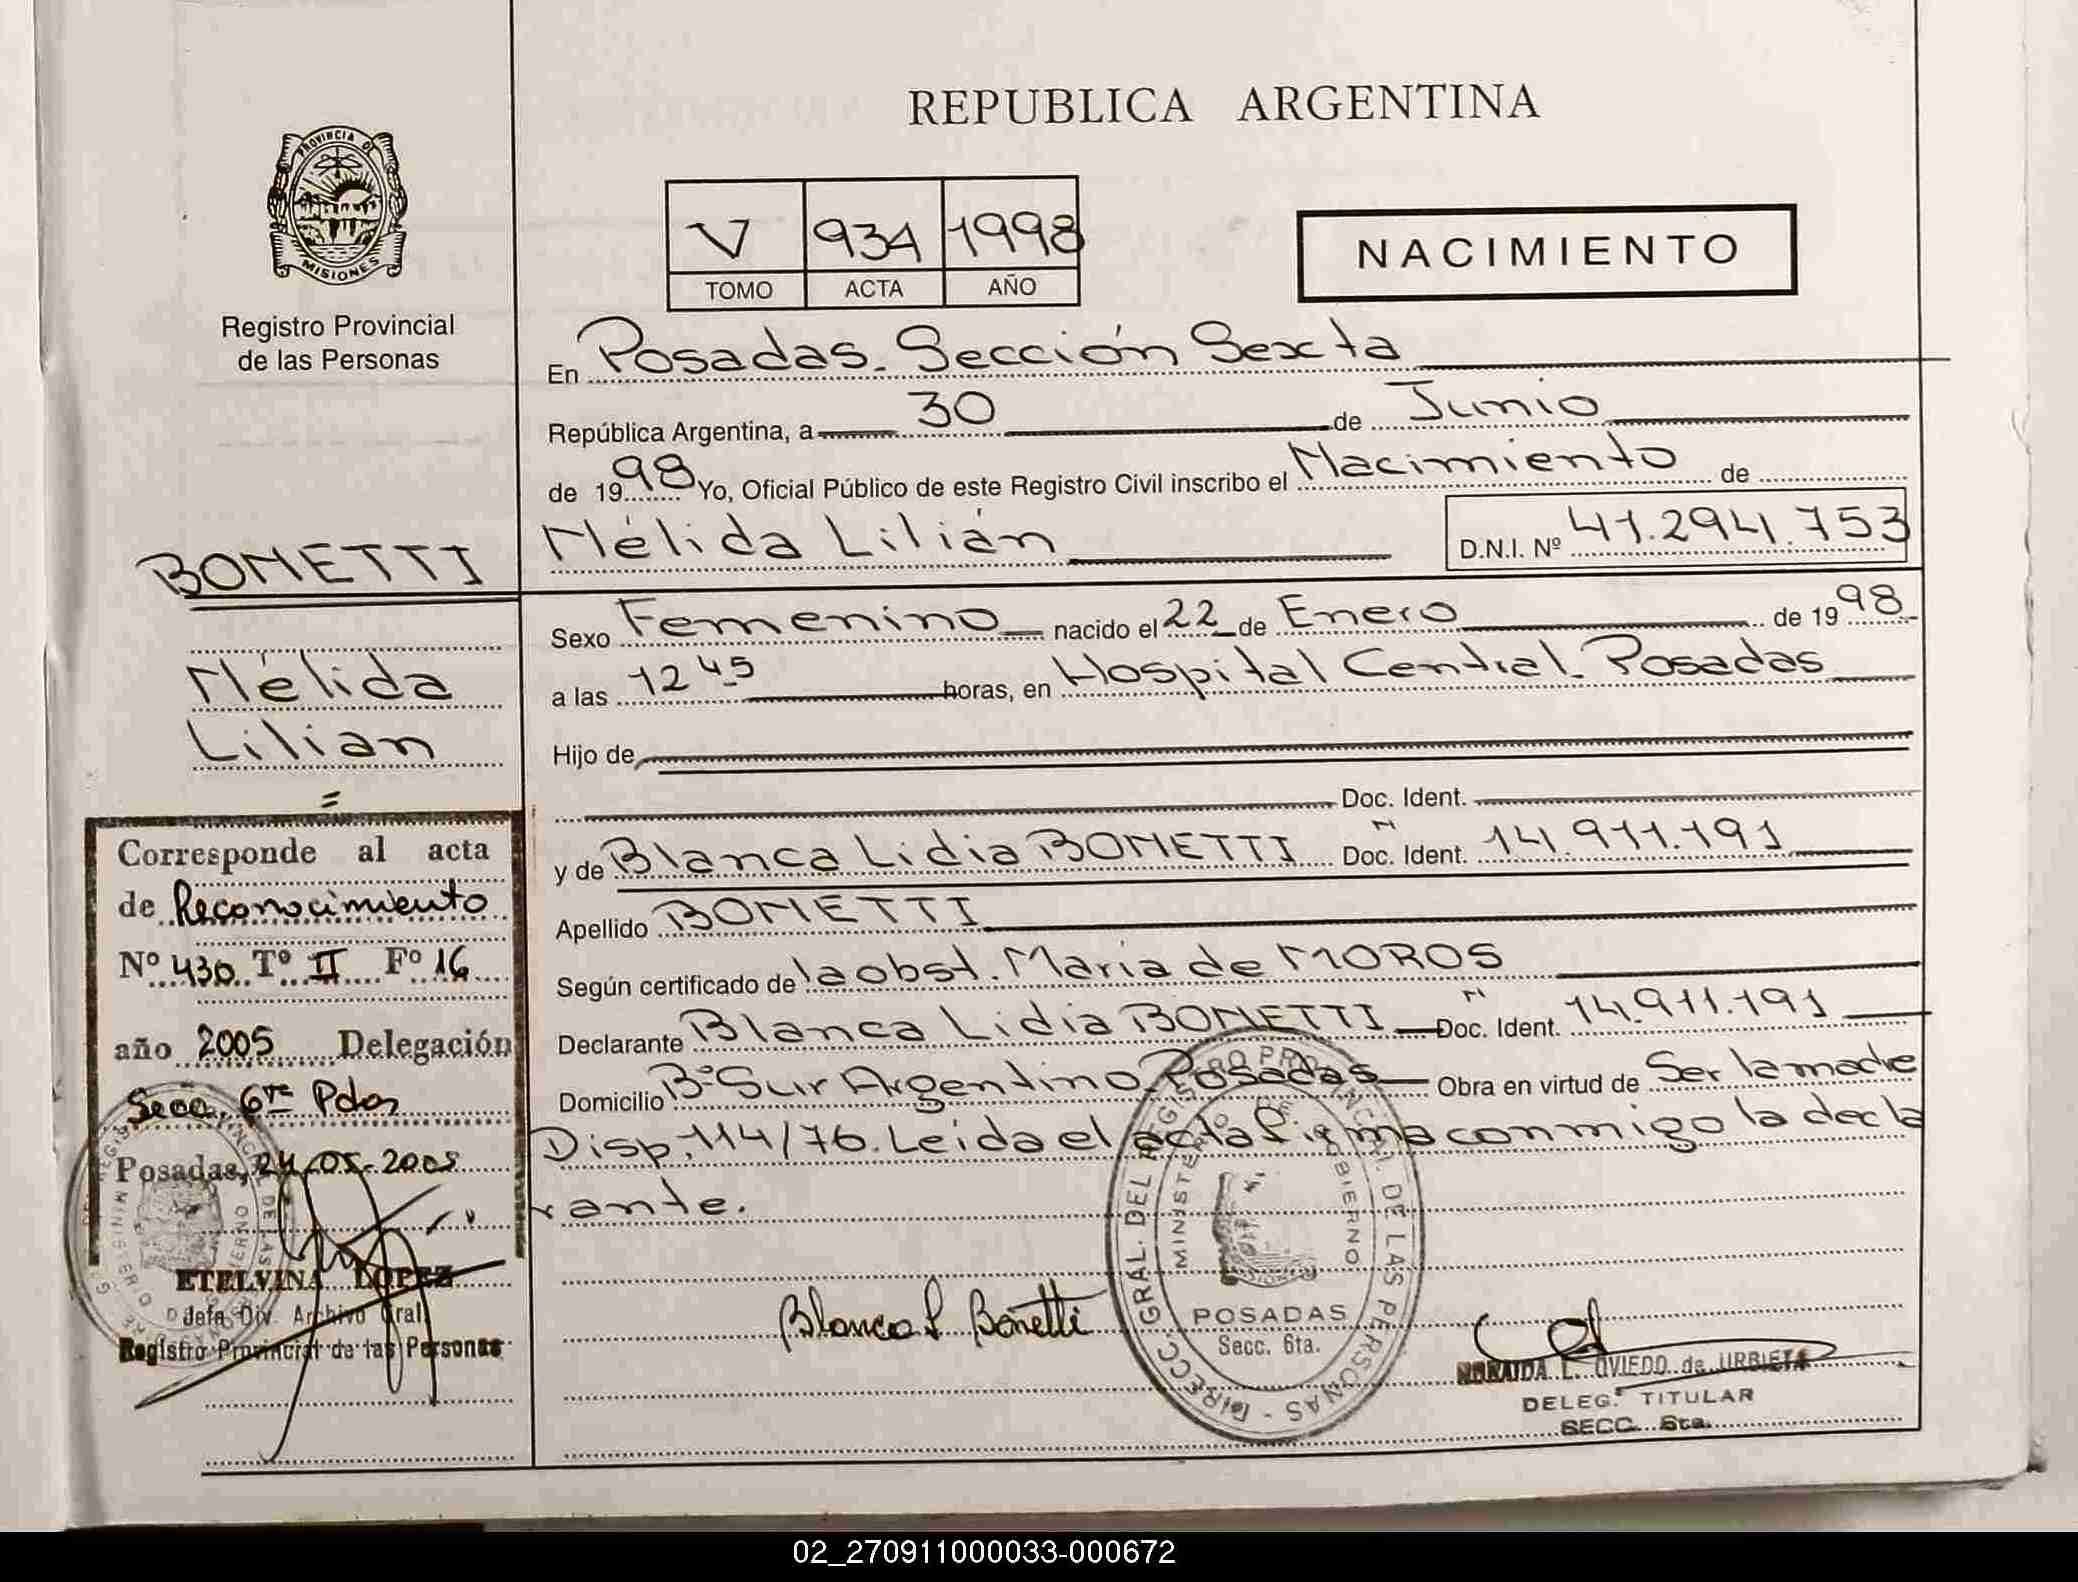 REPUBLICA ARGENTINA
PROVINCIA DE
MISIONES
Registro Provincial
de las Personas
V 934 1998
TOMO ACTA AÑO
NACIMIENTO
En Posadas. Sección Sexta
República Argentina, a 30 de Junio
de 1998 Yo, Oficial Público de este Registro Civil inscribo el Nacimiento de
Nélida Lilián D.N.I. Nº 41.294.753
BONETTI
Nélida
Lilian
Sexo Femenino nacido el 22 de Enero de 1998
a las 12 45 horas, en Hospital Central. Posadas
Hijo de
Doc. Ident.
y de Blanca Lidia BONETTI Doc. Ident. N 14.911.191
Apellido BONETTI
Según certificado de la obst. Maria de MOROS
Declarante Blanca Lidia BONETTI Doc. Ident. N 14.911.191
Domicilio Bº Sur Argentino Posadas Obra en virtud de Ser la madre
Disp. 114/76. Leida el acta firma conmigo la decla
rante.
Corresponde al acta
de Reconocimiento
Nº 430 Tº II Fº 16
año 2005 Delegación
Secc. 6ta Pdas
Posadas, 24-05-2005
ETELVINA LOPEZ
Jefa Div. Archivo Gral.
Registro Provincial de las Personas
Blanca L Bonetti
DIRECC. GRAL. DEL REGISTRO PROVINCIAL DE LAS PERSONAS
MINISTERIO DE GOBIERNO
MISIONES
POSADAS
Secc. 6ta.
L. OVIEDO de URBIETA
DELEG. TITULAR
SECC. 6ta.
02_270911000033-000672